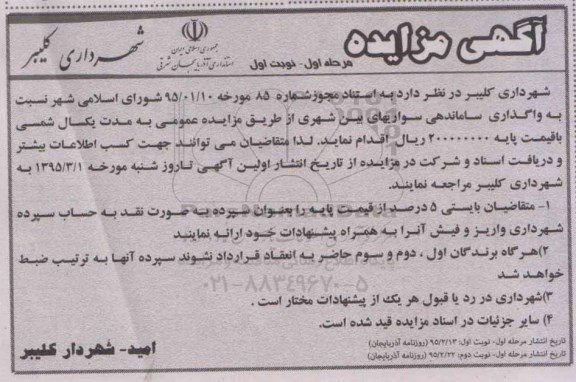 آگهی مزایده
مرحله اول - نوبت اول
جمهوری اسلامی ایران
استانداری آذربایجان شرقی
شهرداری کلیبر
شهرداری کلیبر در نظر دارد به استناد مجوزشماره ۸۵ مورخه ۹۵/۰۱/۱۰ شورای اسلامی شهر نسبت
به واگذاری ساماندهی سواریهای بین شهری از طریق مزایده عمومی به مدت یکسال شمسی
باقیمت پایه ۲۰۰۰۰۰۰۰۰ ریال اقدام نماید. لذا متقاضیان می توانند جهت کسب اطلاعات بیشتر
و دریافت اسناد و شرکت در مزایده از تاریخ انتشار اولین آگهی تاروز شنبه مورخه ۱۳۹۵/۳/۱ به
شهرداری کلیبر مراجعه نمایند.
۱- متقاضیان بایستی ۵ درصد از قیمت پایه را بعنوان سپرده به صورت نقد به حساب سپرده
شهرداری واریز و فیش آنرا به همراه پیشنهادات خود ارائه نمایند
۲)هرگاه برندگان اول ، دوم و سوم حاضر به انعقاد قرارداد نشوند سپرده آنها به ترتیب ضبط
خواهد شد
۰۲۱-۸۸۳۴۹۶۷۰-۵
۳)شهرداری در رد یا قبول هر یک از پیشنهادات مختار است .
۴) سایر جزئیات در اسناد مزایده قید شده است.
تاریخ انتشار مرحله اول، نوبت اول: ۹۵/۲/۱۳ (روزنامه آذربایجان)
تاریخ انتشار مرحله اول، نوبت دوم: ۹۵/۲/۲۲ (روزنامه آذربایجان)
امید- شهردار کلیبر